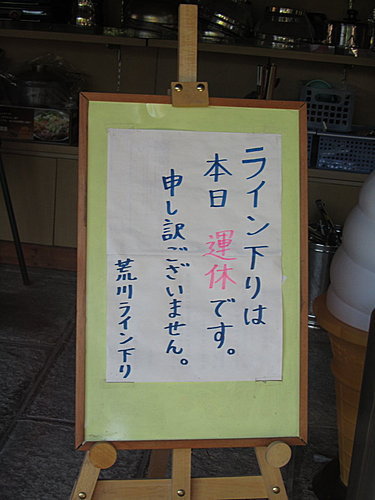 ライン下りは
本日 運休です。
申し訳ございません。
荒川ライン下り